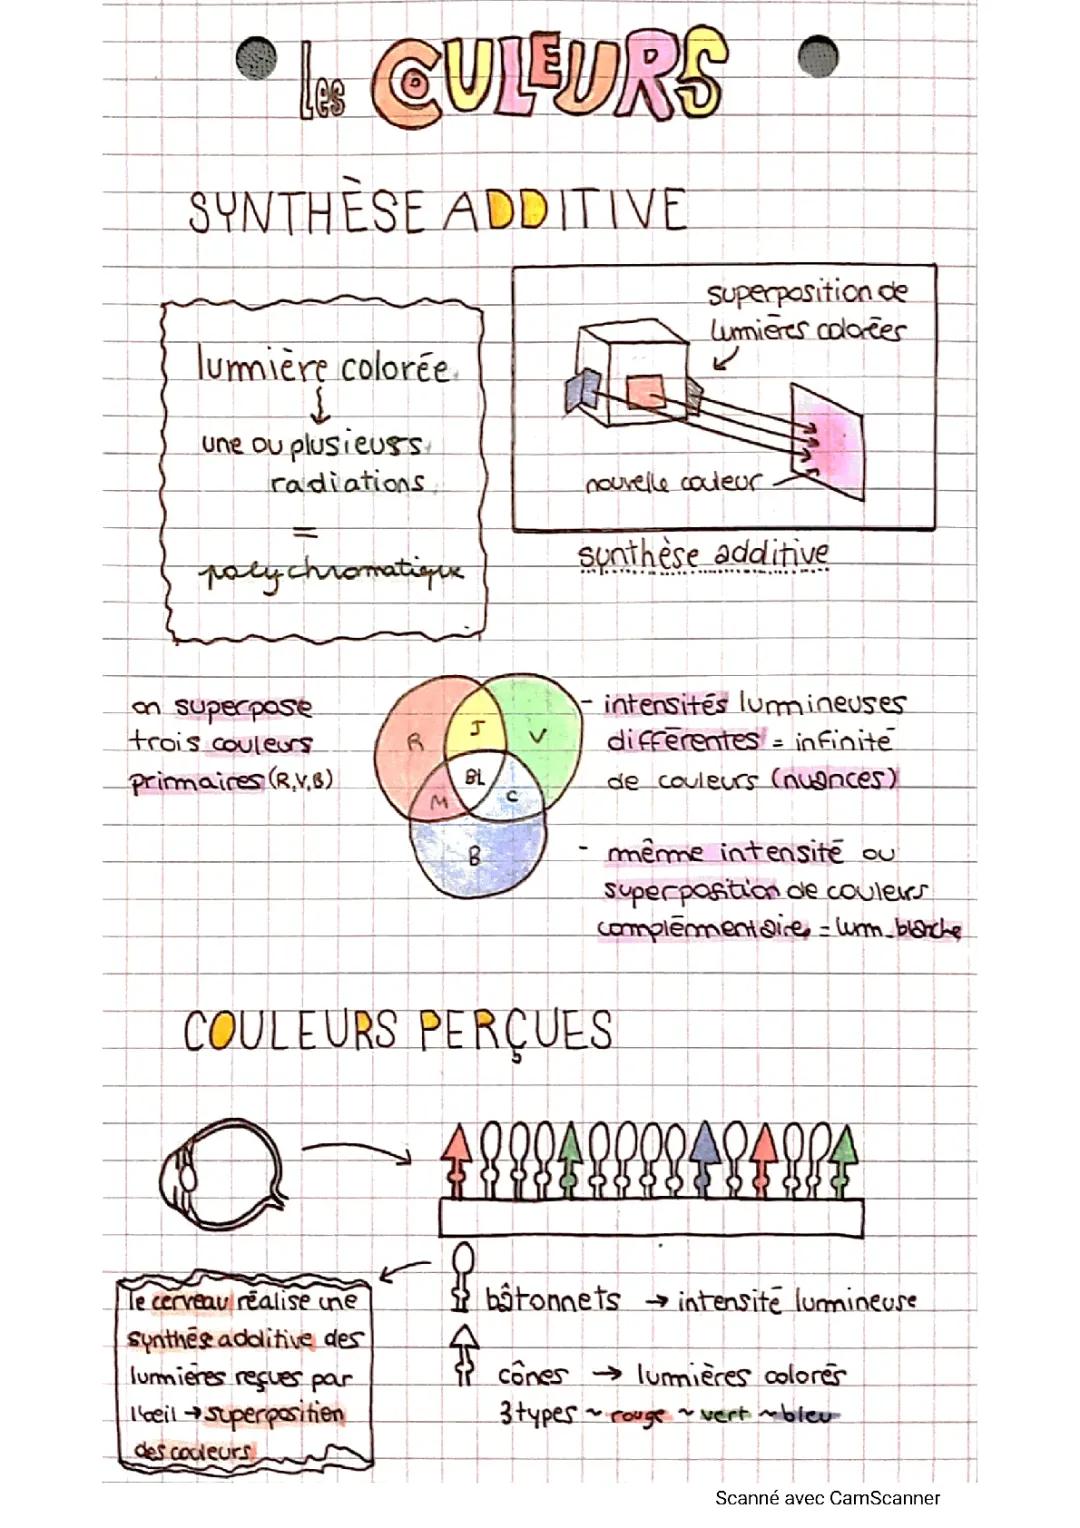 les COULEURS
SYNTHÈSE ADDITIVE
lumière colorée
une ou plusieurs
radiations
=
polychromatique
superposition de
lumières colorées
nouvelle couleur
synthèse additive
on superpose
trois couleurs
primaires (R,V,B)
R
J
V
BL
M
C
B
- intensités lumineuses
différentes = infinité
de couleurs (nuances)
- même intensité ou
superposition de couleurs
complémentaires = lum. blanche
COULEURS PERÇUES
le cerveau réalise une
synthès additive des
lumières reçues par
l'œil → superposition
des couleurs
bâtonnets → intensité lumineuse
cônes → lumières colorés
3 types ~ rouge ~ vert ~ bleu
Scanné avec CamScanner